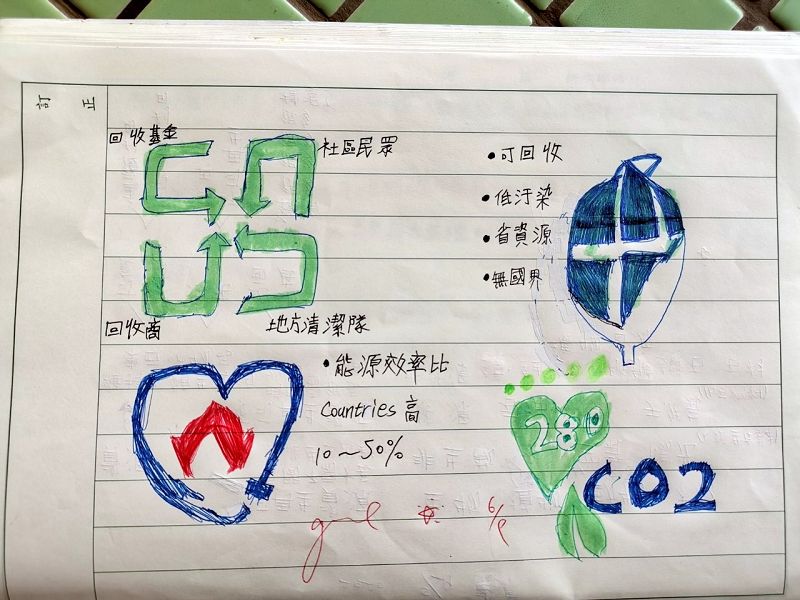 訂正
回收基金
社區民眾
回收商
地方清潔隊
•可回收
•低汙染
•省資源
•無國界
•能源效率比
Countries 高
10~50%
280
CO2